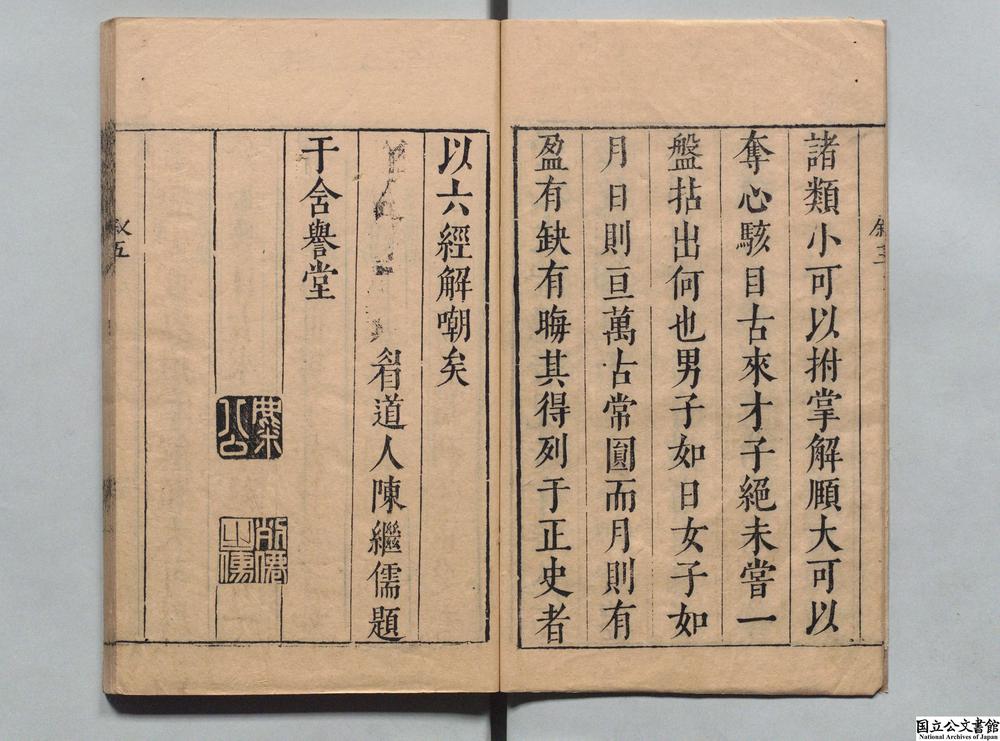 諸類小可以拊掌解頤大可以
奪心駭目古來才子絕未嘗一
盤拈出何也男子如日女子如
月日則亘萬古常圓而月則有
盈有缺有晦其得列于正史者
以六經解嘲矣
道人陳繼儒題
于含譽堂
五
国立公文書館
National Archives of Japan